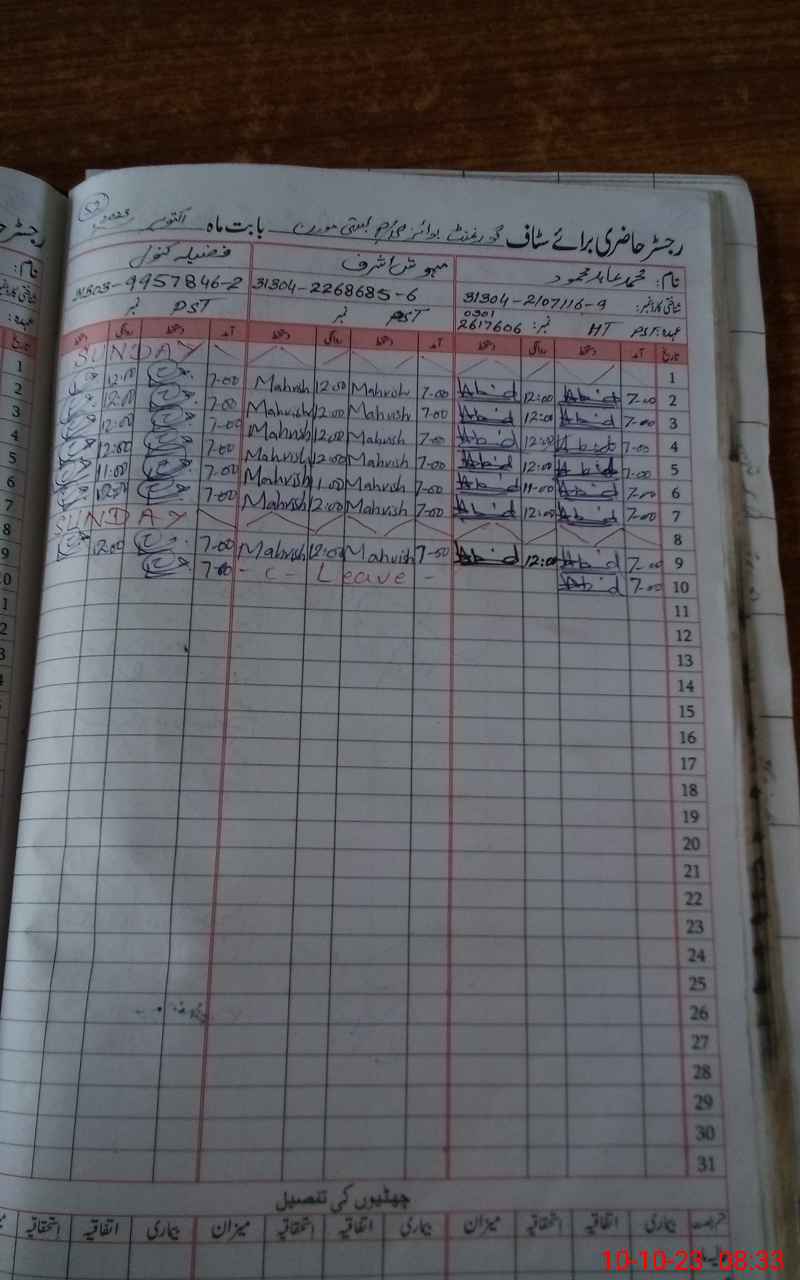 52
رجسٹر حاضری برائے سٹاف گورنمنٹ بوائز بابت ماہ اکتوبر 2023
نام: محمد عابد محمود مہوش اشرف فضیلہ کنول
شناختی کارڈ نمبر: 31304-2107116-9 31304-2268685-6 31303-9957846-2
عہدہ: PST HT نمبر: 0301 2617606 PST نمبر PST نمبر
تاریخ آمد دستخط روانگی دستخط آمد دستخط روانگی دستخط آمد دستخط روانگی دستخط
1 SUNDAY
2 7-00 Abid 12:00 Abid 7-00 Mahvish 12:00 Mahvish 7-00 12:00
3 7-00 Abid 12:00 Abid 7-00 Mahvish 12:00 Mahvish 7-00 12:00
4 7-00 Abid 12:00 Abid 7-00 Mahvish 12:00 Mahvish 7-00 12:00
5 7-00 Abid 12:00 Abid 7-00 Mahvish 12:00 Mahvish 7-00 12:00
6 7-00 Abid 11-00 Abid 7-00 Mahvish Mahvish 7-00 11:00
7 7-00 Abid 12:00 Abid 7-00 Mahvish 12:00 Mahvish 7-00 12:00
8 SUNDAY
9 7-00 Abid 12:00 Abid 7-00 Mahvish 12:00 Mahvish 7-00 12:00
10 7-00 Abid - C - Leave - 7-00
11
12
13
14
15
16
17
18
19
20
21
22
23
24
25
26
27
28
29
30
31
چھٹیوں کی تفصیل
بیماری اتفاقیہ استحقاقیہ میزان بیماری اتفاقیہ استحقاقیہ میزان بیماری اتفاقیہ استحقاقیہ
10-10-23 08:33